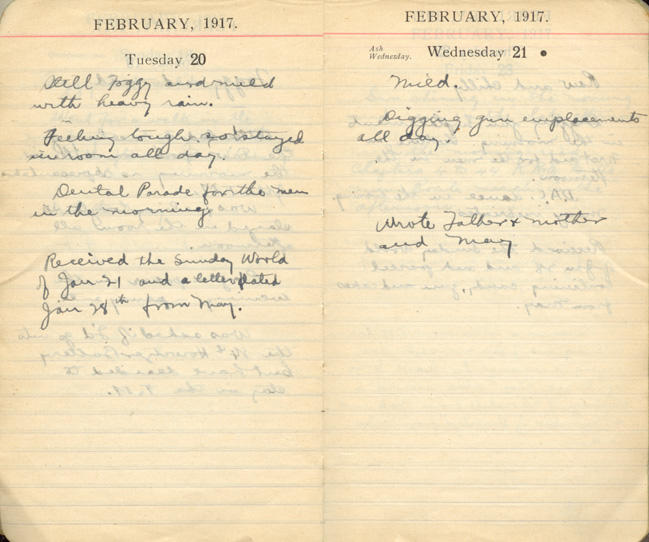 FEBRUARY, 1917.
Tuesday 20
Still foggy and mild
with heavy rain.
Feeling tough so stayed
in room all day.
Dental Parade for the men
in the morning.
Received the Sunday World
of Jan 21 and a letter dated
Jan 28th from May.
FEBRUARY, 1917.
Ash
Wednesday.
Wednesday 21
Mild.
Digging gun emplacements
all day.
Wrote Father & Mother
and May